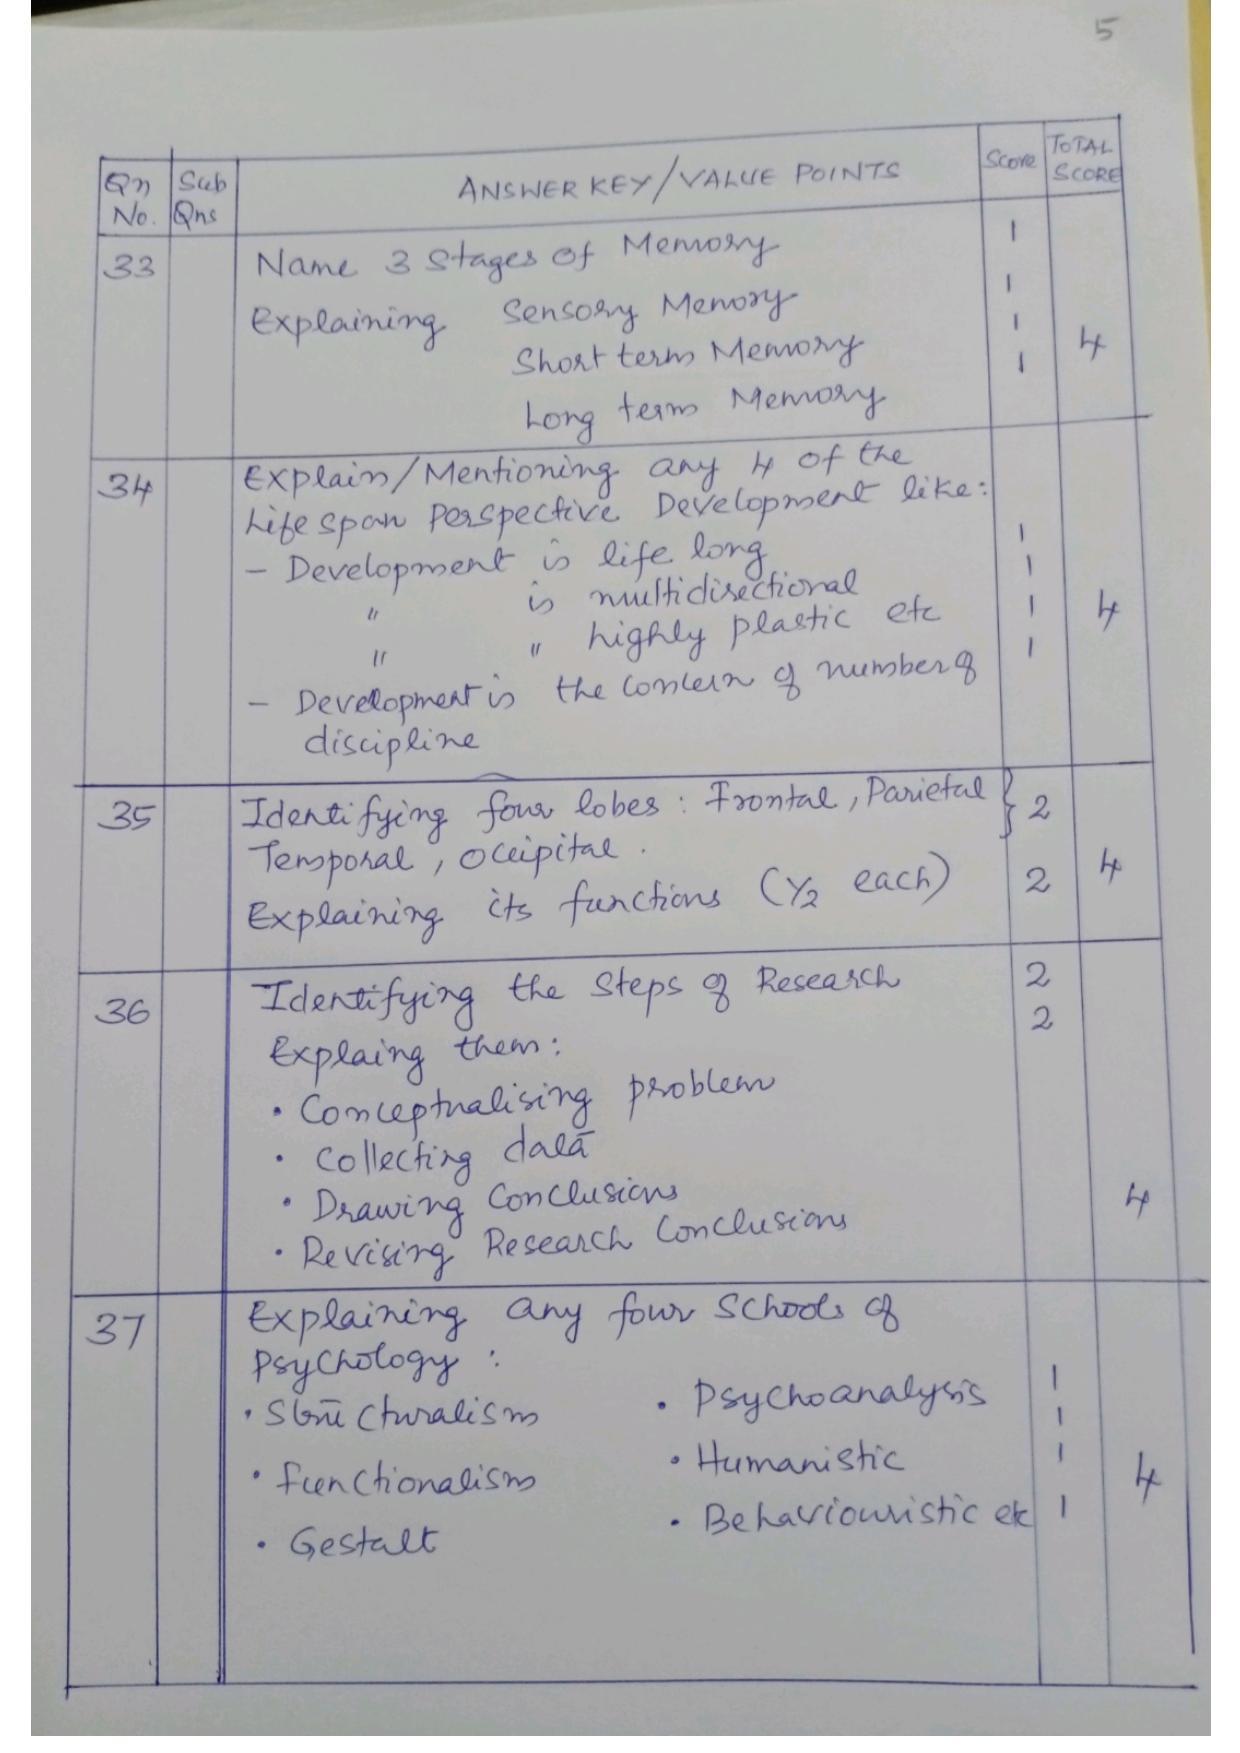 5
Qn No. Sub Qns ANSWER KEY/VALUE POINTS Score TOTAL SCORE
33 Name 3 Stages of Memory 1
Explaining Sensory Memory 1
Short term Memory 1 4
Long term Memory 1
34 Explain/Mentioning any 4 of the
Life span Perspective Development like:
- Development is life long 1
" is multidirectional 1
" " highly plastic etc 1 4
- Development is the concern of number of 1
discipline
35 Identifying four lobes : Frontal, Parietal } 2
Temporal, Occipital. 4
Explaining its functions (1/2 each) 2
36 Identifying the Steps of Research 2
Explaing them: 2
• Conceptualising problem
• Collecting data
• Drawing Conclusions 4
• Revising Research Conclusions
37 Explaining any four Schools of
Psychology :
• Structuralism • Psychoanalysis 1
1
• Functionalism • Humanistic 1 4
• Gestalt • Behaviouristic etc 1